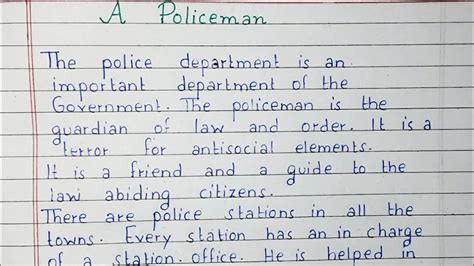 A Policeman
The police department is an
important department of the
Government. The policeman is the
guardian of law and order. It is a
terror for antisocial elements.
It is a friend and a guide to the
law abiding citizens.
There are police stations in all the
towns. Every station has an in charge
of a station office. He is helped in